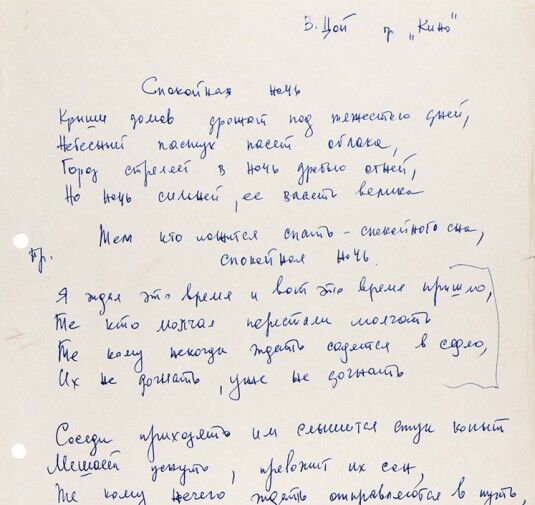 В. Цой гр „Кино"
Спокойная ночь
Крыши домов дрожат под тяжестью дней,
Небесный пастух пасет облака,
Город стреляет в ночь дробью огней,
Но ночь сильней, ее власть велика
Тем кто ложится спать - спокойного сна,
пр. спокойная ночь.
Я ждал это время и вот это время пришло,
Те кто молчал перестали молчать
Те кому некогда ждать садятся в седло,
Их не догнать, уже не догнать
Соседи приходят им слышится стук копыт
Мешает уснуть, тревожит их сон,
Те кому нечего ждать отправляются в путь,